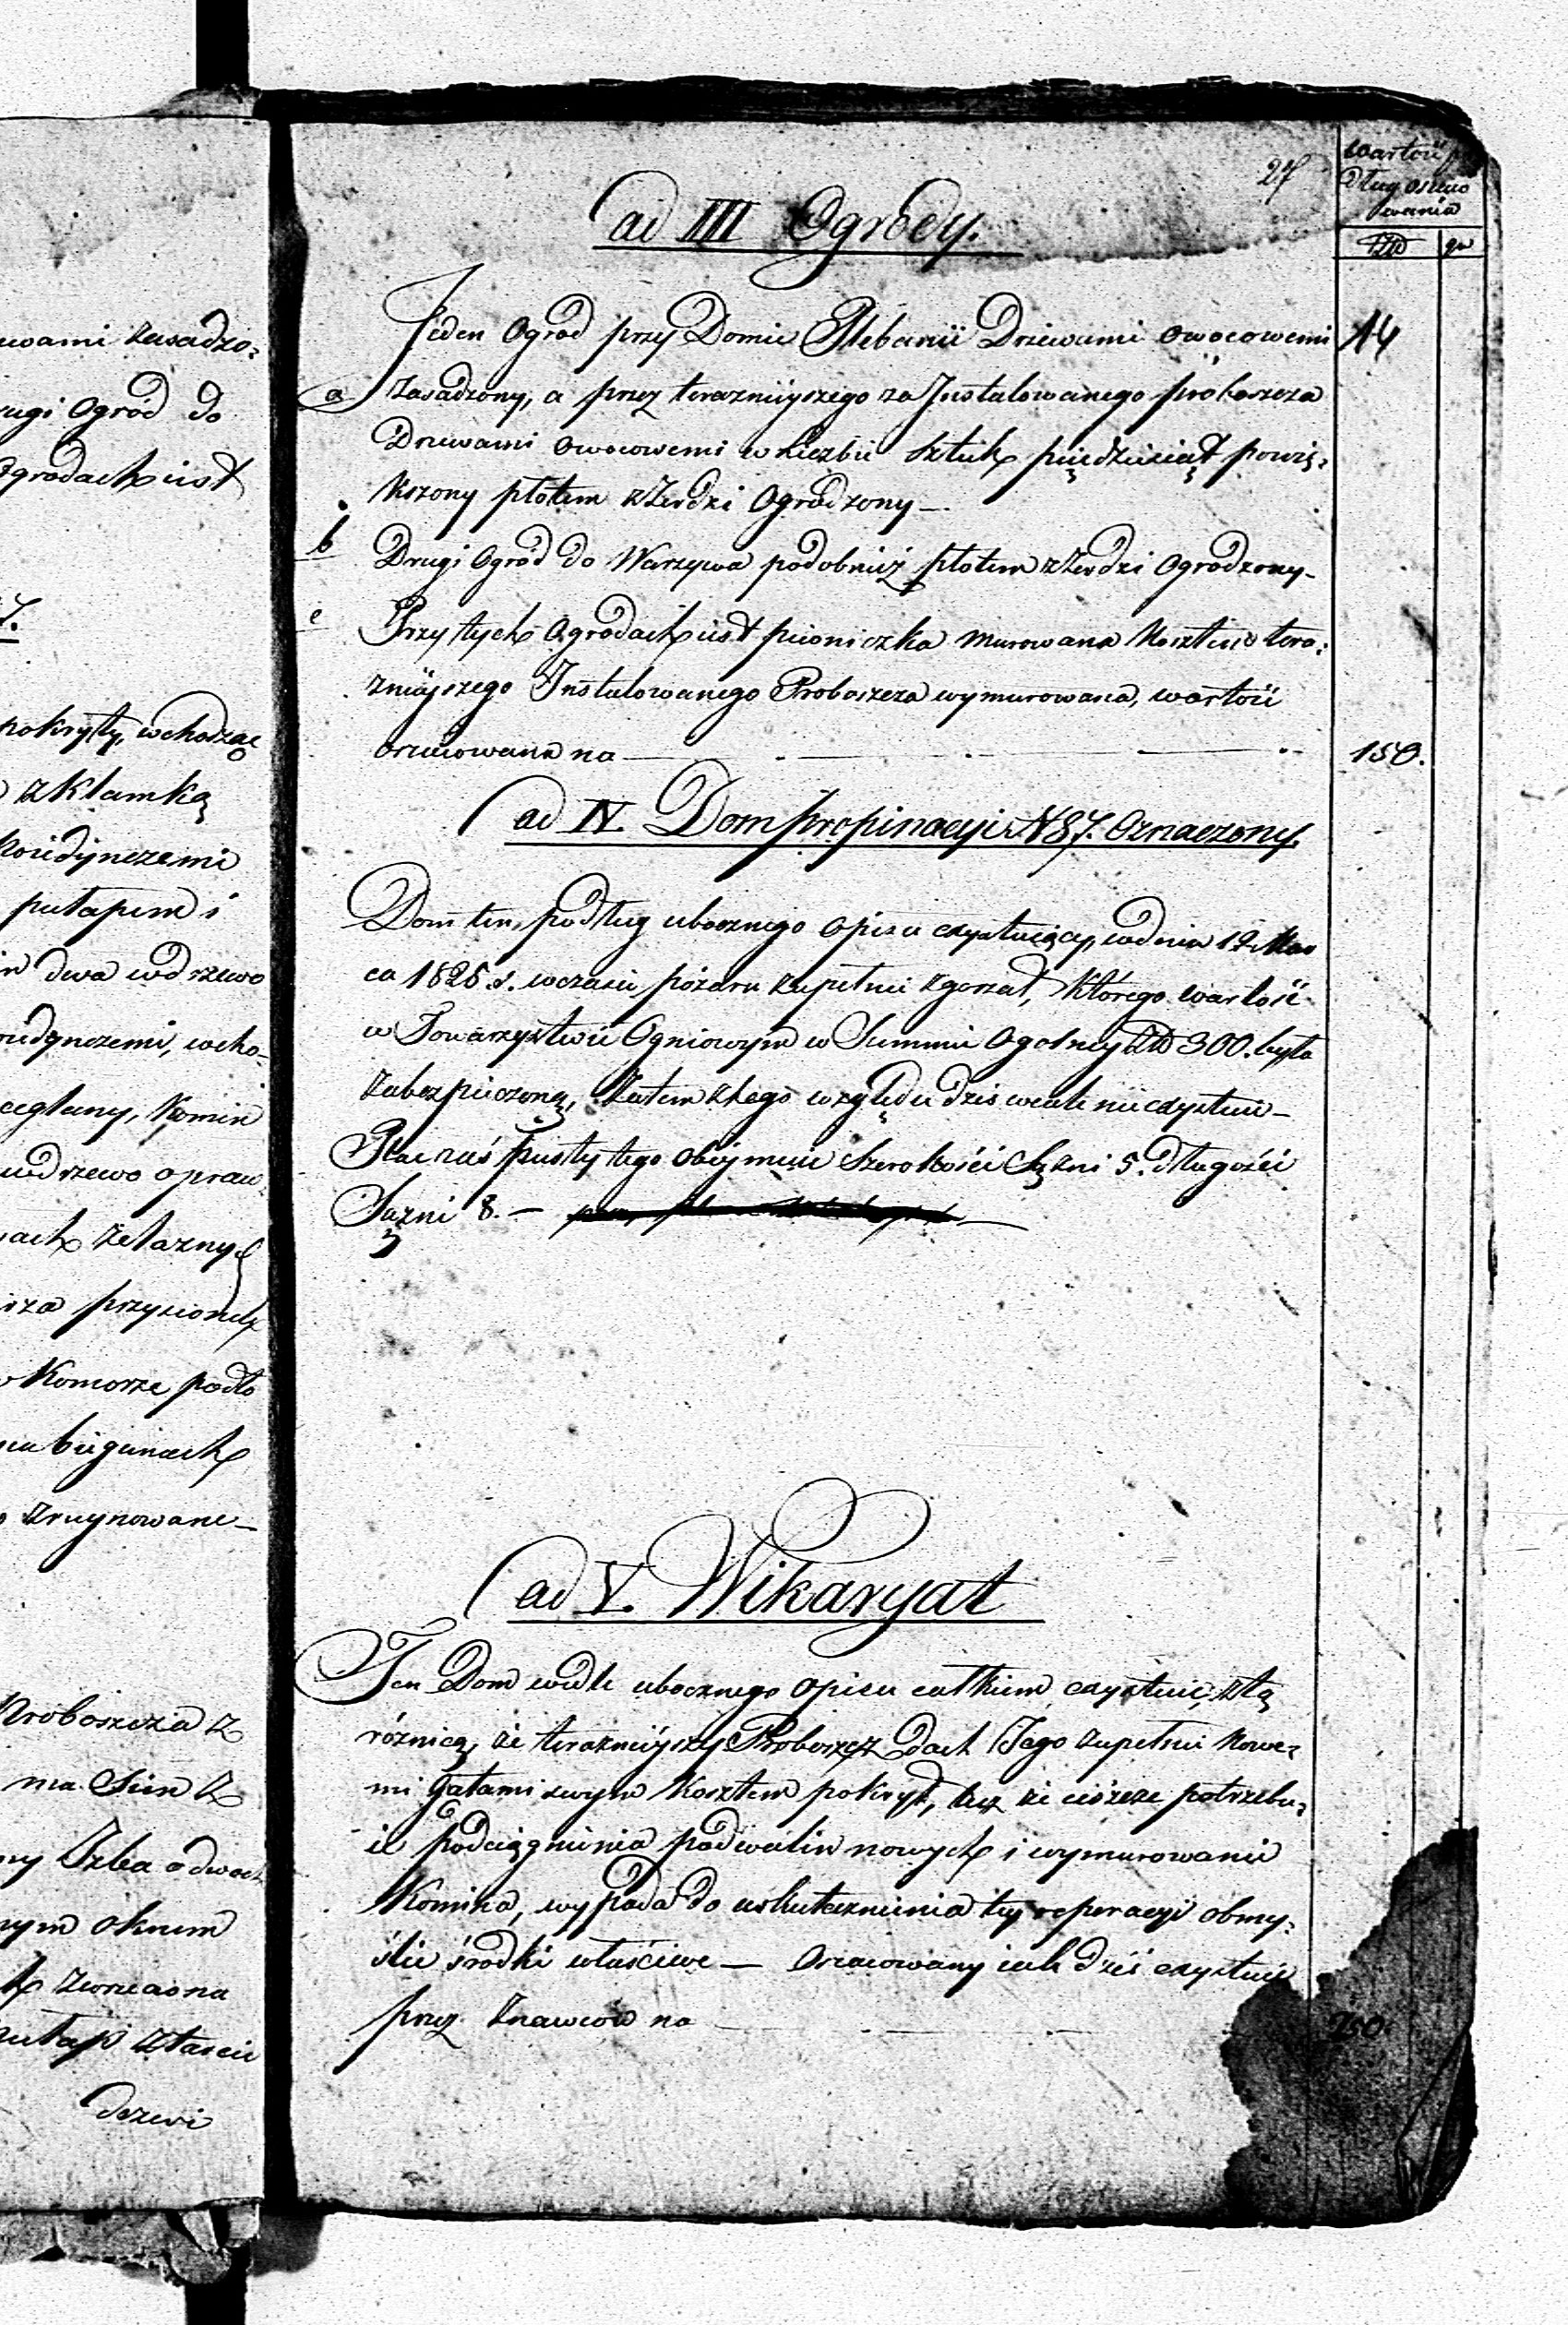 uwami zasadzo-
rugi Ogród do
Ogrodach iest
7.
pokryty, wchodząc
z klamką
pułapem i
dwa w drzewo
udynczemi, wcho-
ceglany, Komin
w drzewo opraw-
ach żelaznych
Komorze podło
na bieganach
zruynowane —
Proboszcza z
ma Sień z
Izba o dwoch
nym oknem
pułap z tarcic
drzwi
27
wartość
dług oszaco
wania
Złp | gr
ad III Ogrody.
Jeden Ogrod przy Domie Plebanii Drzewami owocowemi
14
a zasadzony, a przez teraznieyszego za Instalowanego proboszcza
Drzewami owocowemi w liczbie sztuk pięćdziesiąt powię-
kszony płotem z Żerdzi Ogrodzony —
b Drugi Ogród do Warzywa podobnież płotem z Żerdzi Ogrodzony —
c Przy tych Ogrodach iest piwniczka murowana kosztem tera-
znieyszego Instalowanego Proboszcza wymurowana, wartość
oszacowana na —
150.
ad IV. Dom propinacyi N 87. Oznaczony.
Dom ten, podług ubocznego opisu exystuiący, w dniu 12 Mar
ca 1825 r. w czasie pożaru zupełnie zgorzał, którego wartość
w Towarzystwie Ogniowym w Summie Ogolney Złp 300. była
zabezpieczoną, Zatem z tego względu dziś wcale nie exystuie —
Plac zaś pusty tego obeymuie Szerokości Sążni 5. długości
Sążni 8. —
ad V. Wikaryat
Ten Dom wedle ubocznego opisu całkiem exystuie, z tą
różnicą, że teraznieyszy Proboszcz dach Jego zupełnie nowe-
mi gatami swym kosztem pokrył, lecz że ieszcze potrzebu-
ie podciągnienia podwalin nowych i wymurowanie
Komina, wypada do uskutecznienia tey reperacyi obmy-
ślić środki właściwe — Oszacowany iak dziś exystuie
przez Znawców na
250.